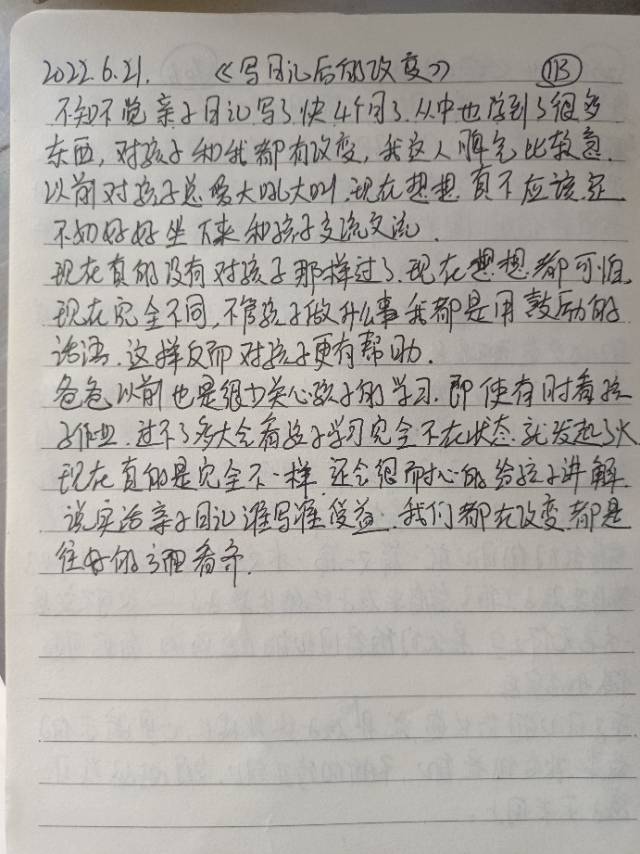 2022.6.21. 《写日记后的改变》 113
不知不觉亲子日记写了快4个月了.从中也学到了很多
东西,对孩子和我都有改变,我这人脾气比较急.
以前对孩子总要大吼大叫.现在想想真不应该,还
不如好好坐下来和孩子交流交流.
现在真的没有对孩子那样过了.现在想想都可怕,
现在完全不同,不管孩子做什么事我都是用鼓励的
话语.这样反而对孩子更有帮助.
爸爸以前也是很少关心孩子的学习.即使有时看孩
子作业.过不了多大会看孩子学习完全不在状态.就发起了火
现在真的是完全不一样.还会很耐心的给孩子讲解.
说实话亲子日记谁写谁受益.我们都在改变.都是
往好的方面看齐.